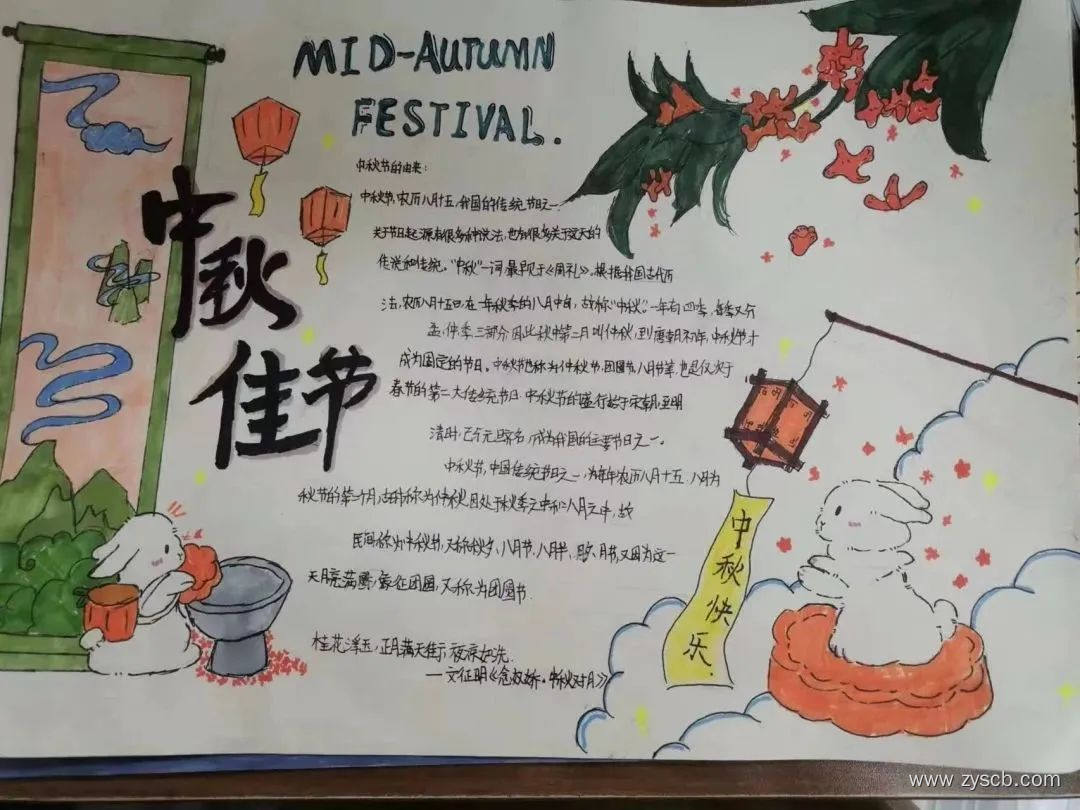 MID-AUTUMN
FESTIVAL.
中秋
佳节
中秋节的由来:
中秋节,农历八月十五,我国的传统节日之一.
关于节日起源有很多种说法,也有很多关于这天的
传说和传统。"中秋"一词,最早见于《周礼》。根据我国古代历
法,农历八月十五日,在一年秋季的八月中旬,故称"中秋"。一年有四季,每季又分
孟,仲,季三部分因此秋中第二月叫仲秋,到唐朝初年,中秋节才
成为固定的节日。中秋节也称为仲秋节,团圆节,八月节等,也是仅次于
春节的第二大传统节日.中秋节的盛行始于宋朝,至明
清时,已与元旦齐名,成为我国的主要节日之一。
中秋节,中国传统节日之一,为每年农历八月十五,八月为
秋节的第二个月,古时称为仲秋,因处于秋季之中和八月之中,故
民间称为中秋节,又称秋夕,八月节,八月半,月节,又因为这一
天月亮满圆,象征团圆,又称为团圆节.
桂花浮玉,正月满天街,夜凉如洗.
—文征明《念奴娇·中秋对月》
中秋快乐.
www.zyscb.com